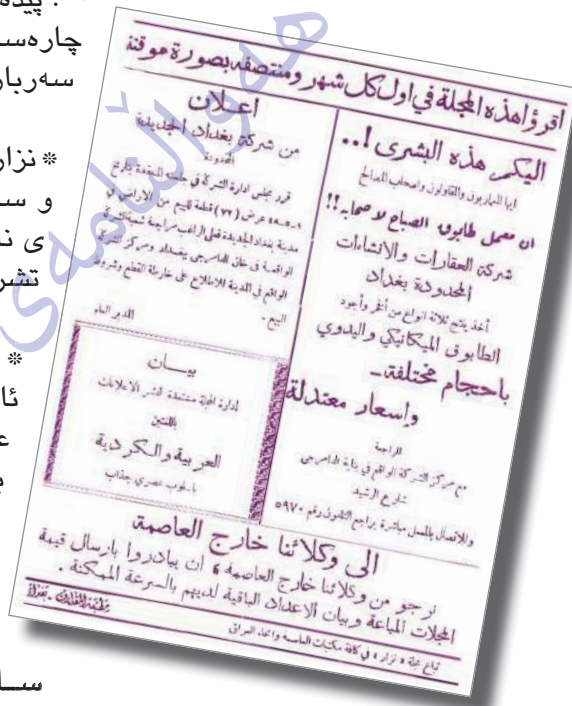 پێده
چارەسـ
سەربار
* نزار
و سـ
ی نـ
تشر
*
ئا
عـ
بـ
ســا
اقرؤا هذه المجلة في اول كل شهر ومنتصفه بصورة موقتة
اليكم هذه البشرى !..
ايها المعماريون والمقاولون واصحاب المصالح
ان معمل طابوق الصباح لاصحابه !!
شركة العقارات والانشاءات
المحدودة بغداد
أخذ ينتج ثلاثة انواع من أفخر وأجود
الطابوق الميكانيكي واليدوي
باحجام مختلفة ـ
واسعار معتدلة
المراجعة
مع مركز الشركة الواقع في بناية الدامرجي
شارع الرشيد
وللاتصال بالمعمل مباشرة يراجع التلفون رقم ٥٩٧٠
اعـــلان
من شركة بغداد الجديدة
المحدودة
قرر مجلس ادارة الشركة في جلسته المنعقدة بتاريخ
عرض (٧٢) قطعة للبيع من الاراضي في
مدينة بغداد الجديدة فعلى الراغب مراجعة
الواقعة في خان الدامرجي ببغداد ومركز الشركة
الواقع في المدينة للاطلاع على خارطة القطع وشروط
البيع .
المدير العام
بيـــان
ادارة المجلة مستعدة لنشر الاعلانات
باللغتين
العربية والكردية
باسلوب عصري جذاب
الى وكلائنا خارج العاصمة
نرجو من وكلائنا خارج العاصمة ، ان يبادروا بارسال قيمة
المجلات المباعة وبيان الاعداد الباقية لديهم بالسرعة الممكنة .
تباع مجلة « نزار » في كافة مكتبات العاصمة وانحاء العراق
هەواڵنامەی